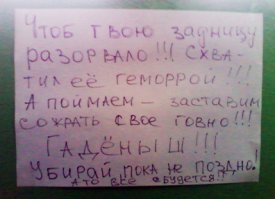 Чтоб твою задницу
разорвало!!! Схва-
тил её геморрой!!!
А поймаем – заставим
сожрать свое говно!!!
Гадёныш!!!
Убирай, пока не поздно!
А то всё сбудется!!